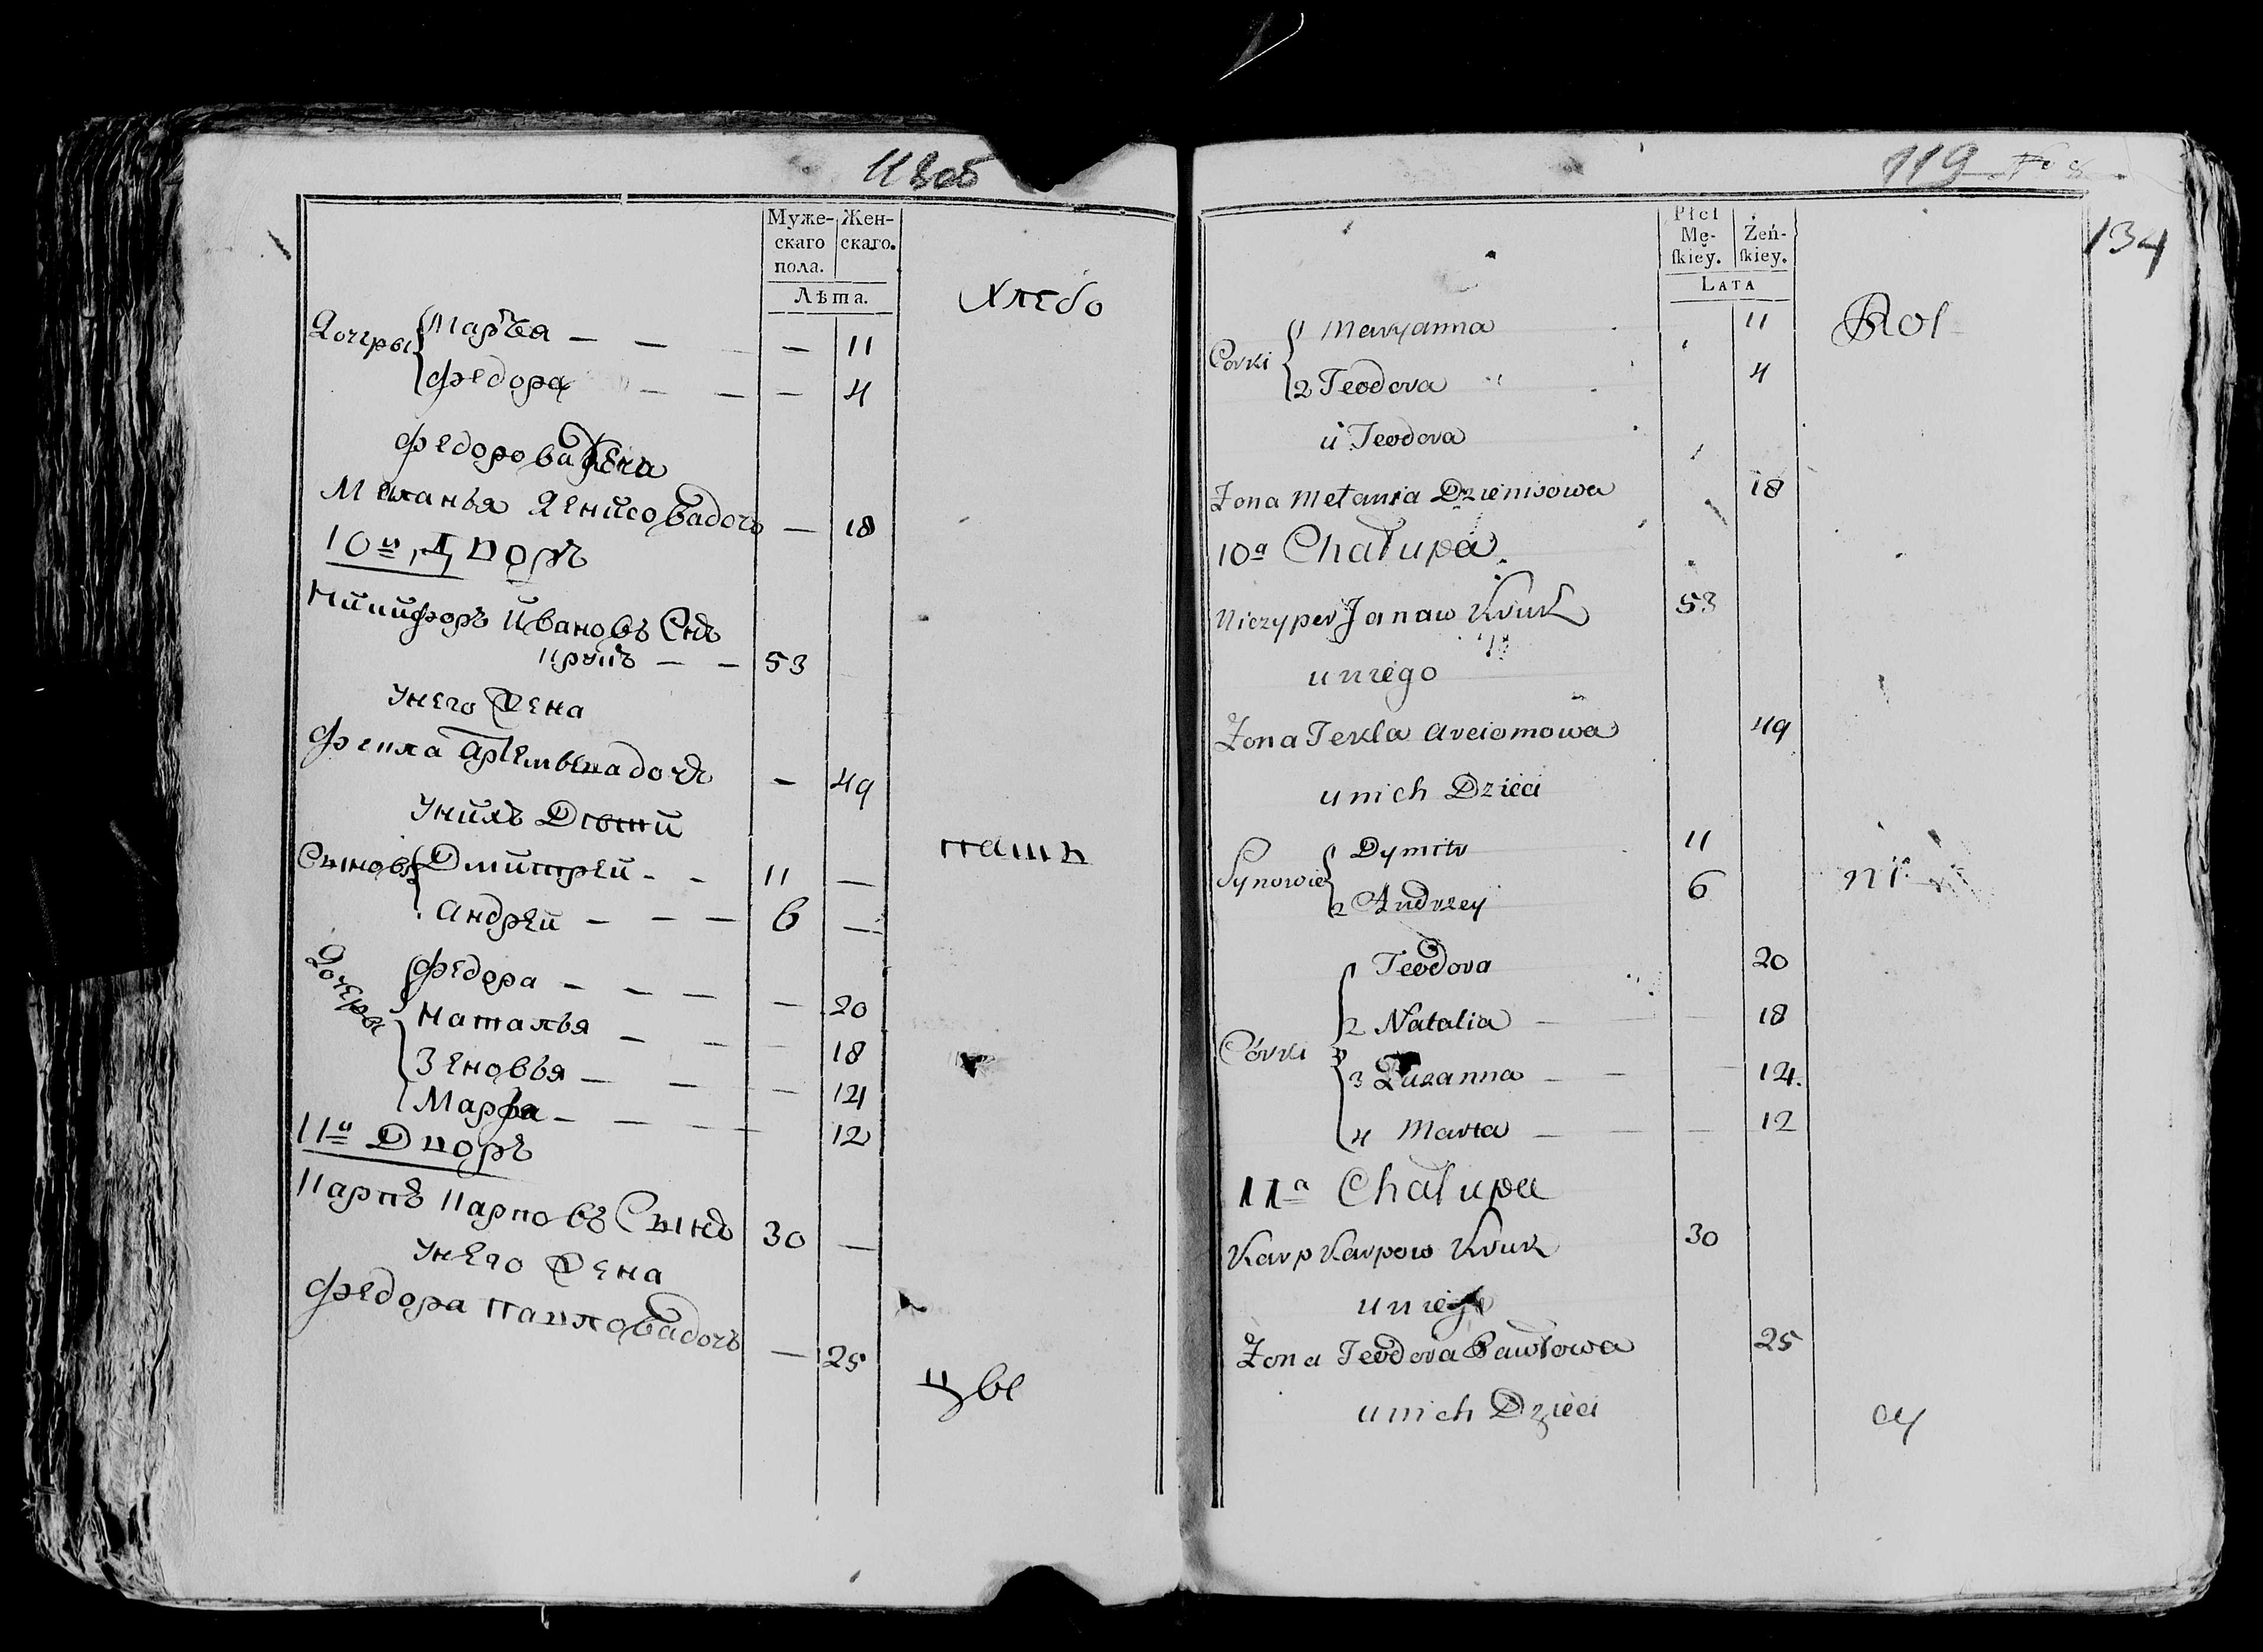 118об
Муже- Жен-
скаго скаго.
пола.
Лѣта.
Хлебо
Дочеры Марья — — — 11
Федора — — — 4
Федорова Жена
Меланья Денисова дочь — 18
10й Дворъ
Никифоръ Ивановъ Снъ
Крукъ — — 53
Унего Жена
Фекла Артемьева дочь — 49
Унихъ Дети
Сыновья Дмитрей - - 11 —
Андрей — — — 6 —
Дочеры Федора — — — — 20
Наталья — — — 18
Зеновья — — — 14
Марфа — — — — 12
11й Дворъ
Карпъ Карповъ Сынъ 30 —
Унего Жена
Федора Павлова дочь — 25
паш
цы
119
134
Płci
Mę- Żeń-
skiey. skiey.
LATA
Rol
Córki 1 Maryanna 11
2 Teodora 4
u Teodora
Żona Mełania Dzienisowa 18
10a Chałupa
Niczyper Janaw Kruk 53
u niego
Żona Tekla Arciomowa 49
u nich Dzieci
Synowie 1 Dymitr 11
2 Andrzey 6
ni
Córki 1 Teodora 20
2 Natalia — — 18
3 Zuzanna — — — 14.
4 Marta — — — 12
11a Chałupa
Karp Karpow Kruk 30
u niego
Żona Teodora Pawłowa 25
u nich Dzieci
cy